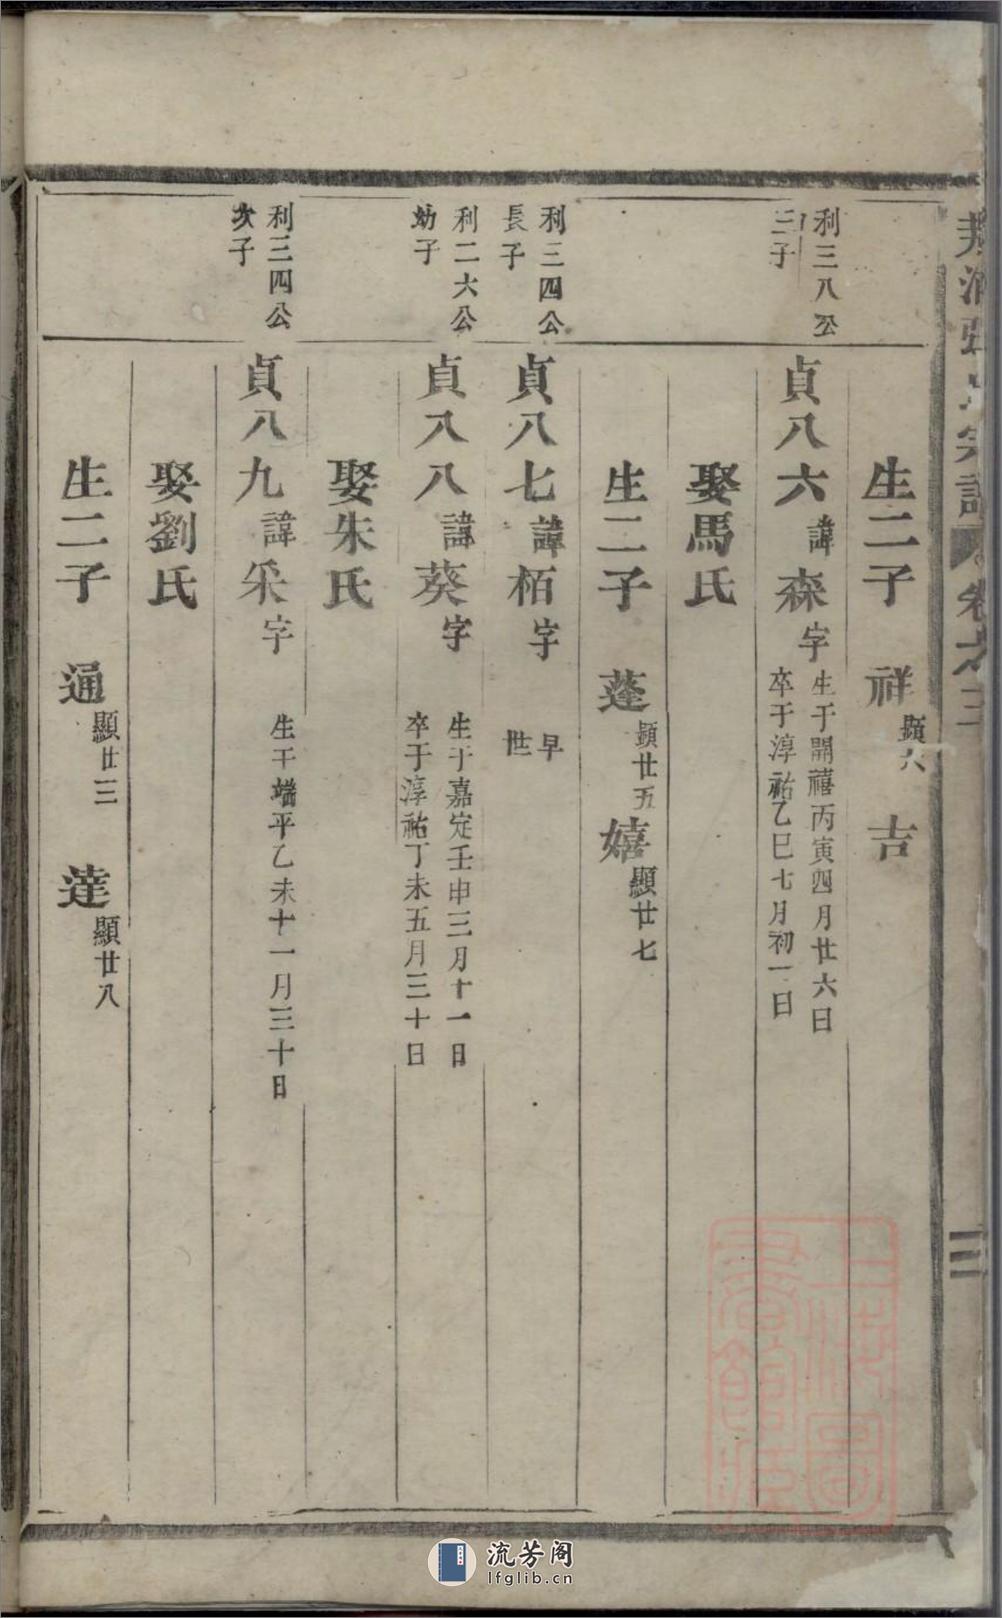 宗譜 卷六
三
生二子 祥 顯六 吉
利三八公
三子
貞八六 諱 森 字
生于開禧丙寅四月廿六日
卒于淳祐乙巳七月初一日
娶馬氏
生二子 蓬 顯廿五 嬉 顯廿七
利三四公
長子
貞八七 諱 栢 字 早世
利二六公
幼子
貞八八 諱 葵 字
生于嘉定壬申三月十一日
卒于淳祐丁未五月三十日
娶朱氏
利三四公
次子
貞八九 諱 采 字
生于端平乙未十一月三十日
娶劉氏
生二子 通 顯廿三 達 顯廿八
上海圖書館藏
流芳阁
lfglib.cn